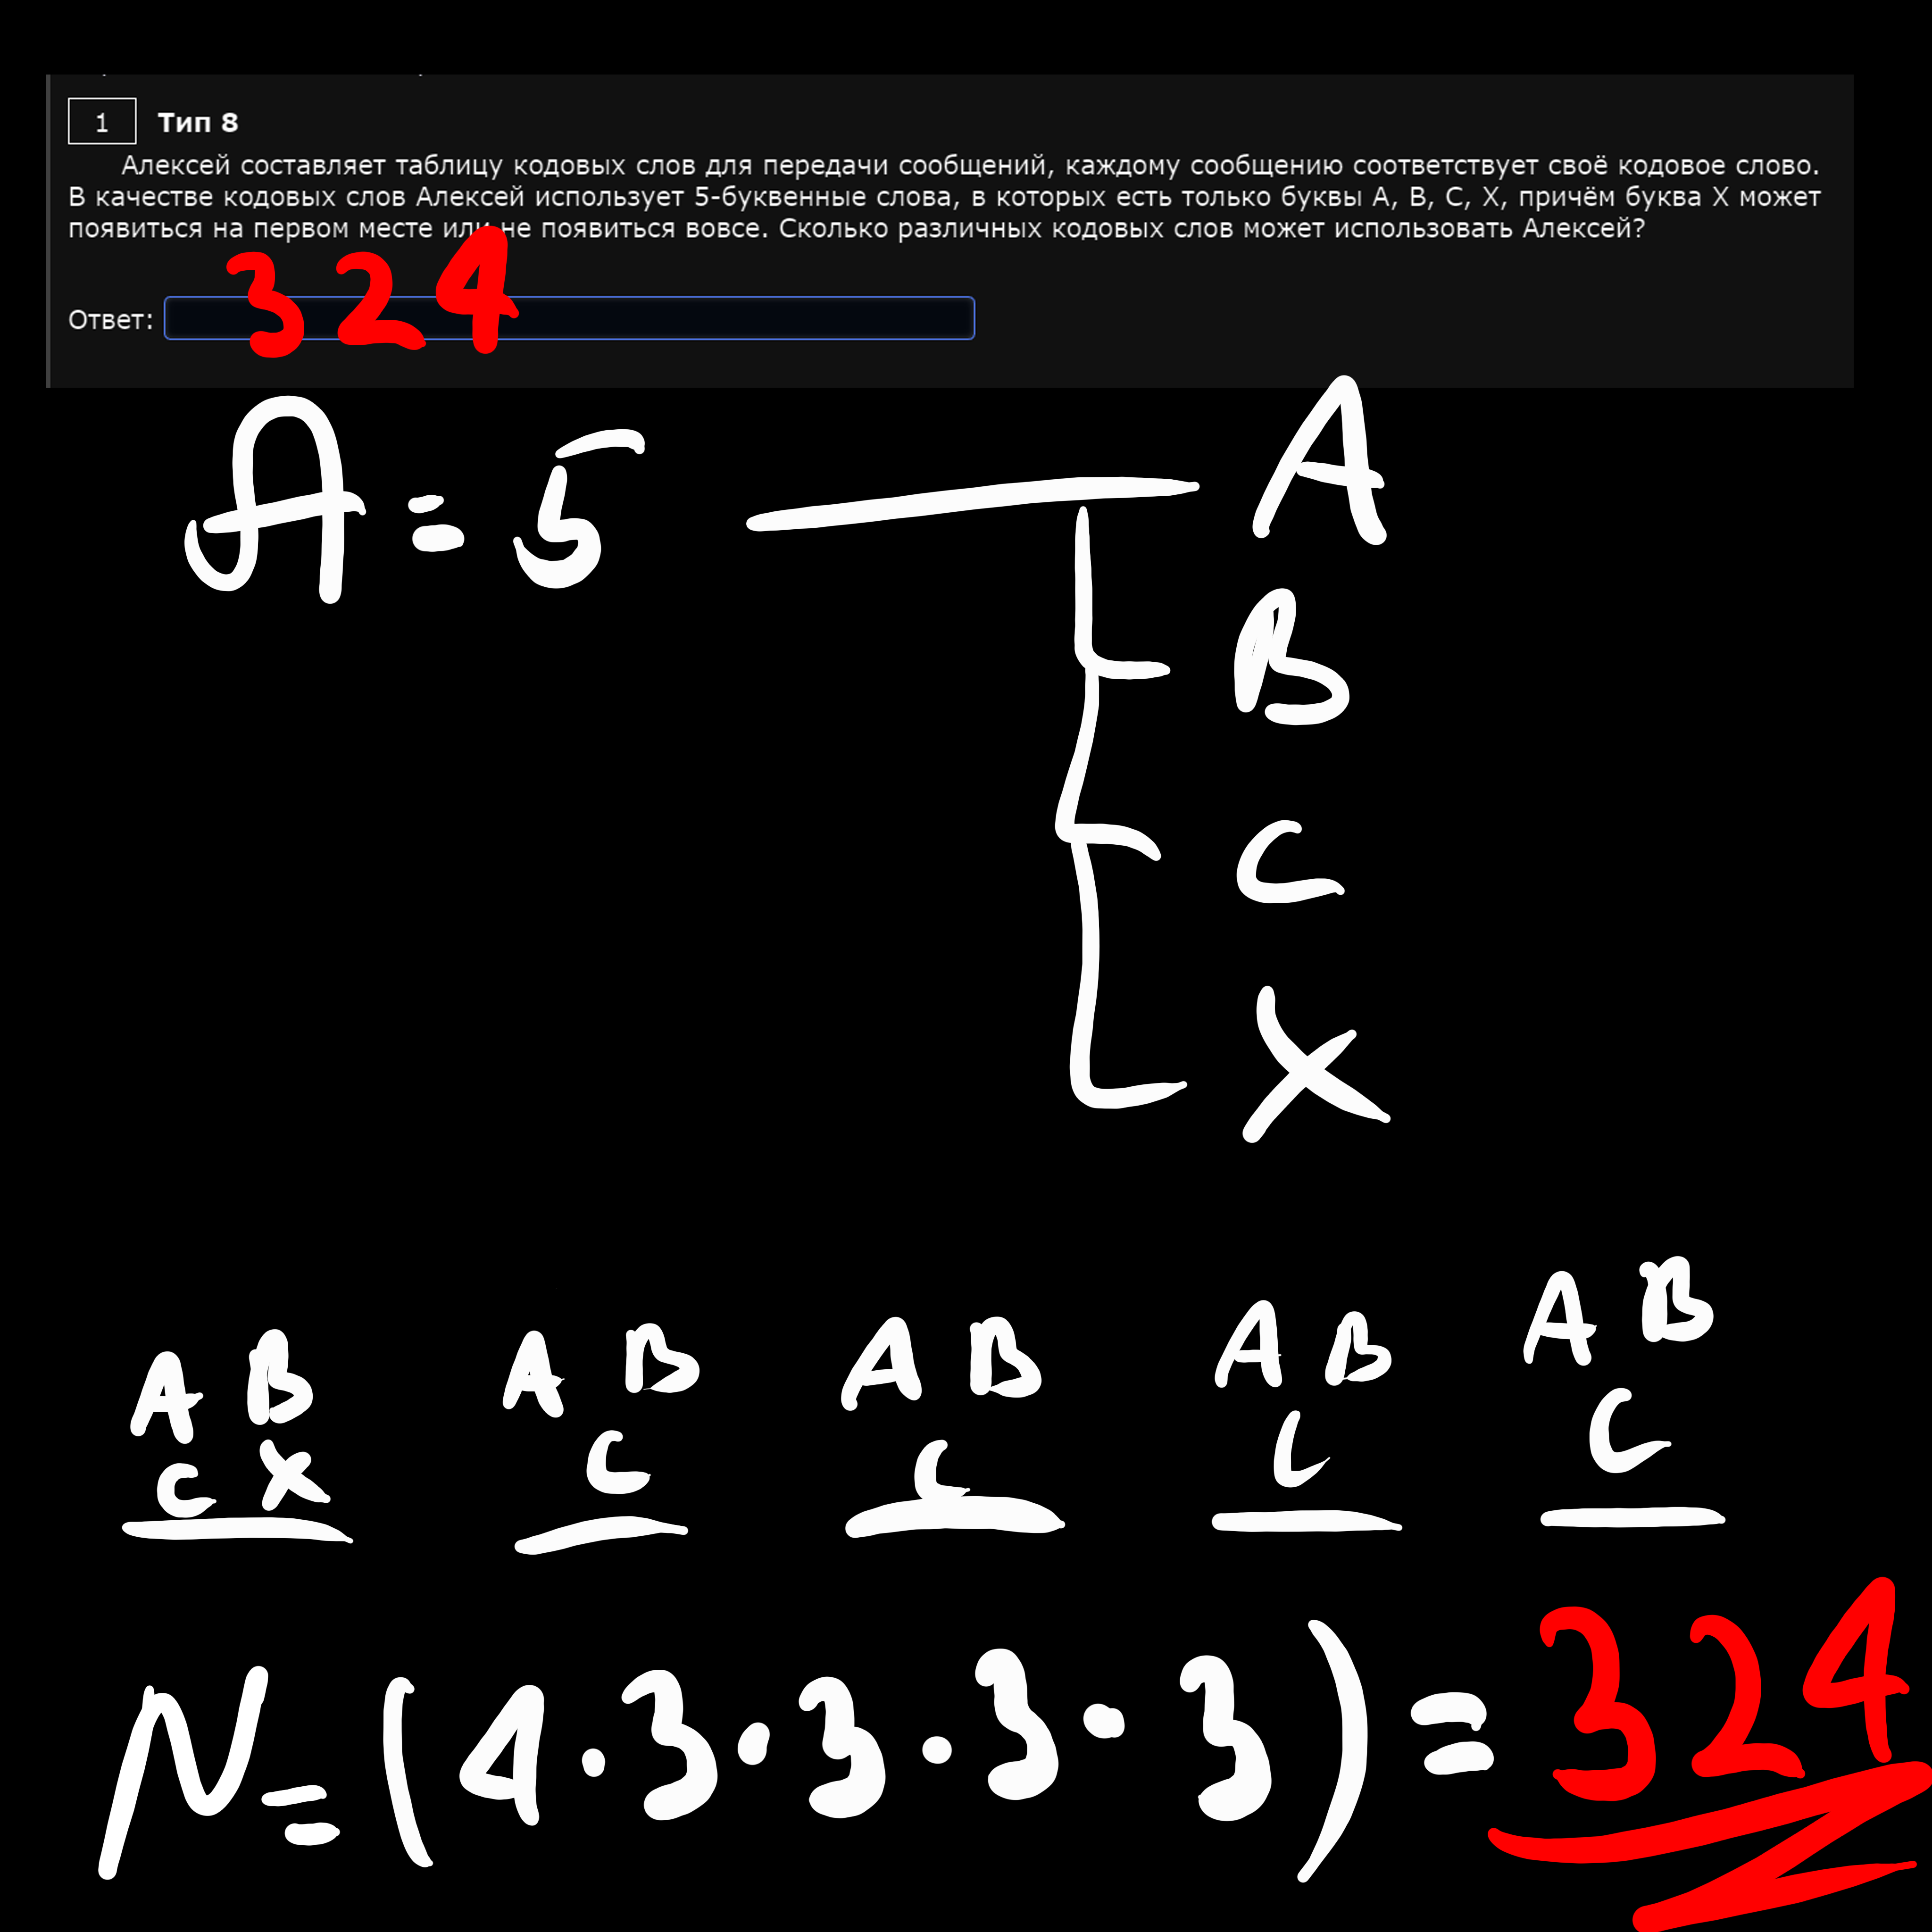 1 Тип 8
Алексей составляет таблицу кодовых слов для передачи сообщений, каждому сообщению соответствует своё кодовое слово.
В качестве кодовых слов Алексей использует 5-буквенные слова, в которых есть только буквы A, B, C, X, причём буква X может
появиться на первом месте или не появиться вовсе. Сколько различных кодовых слов может использовать Алексей?
Ответ: 324
A = 5
A
B
C
X
A B A B A B A B A B
C X C C C C
N = (4 · 3 · 3 · 3 · 3) = 324